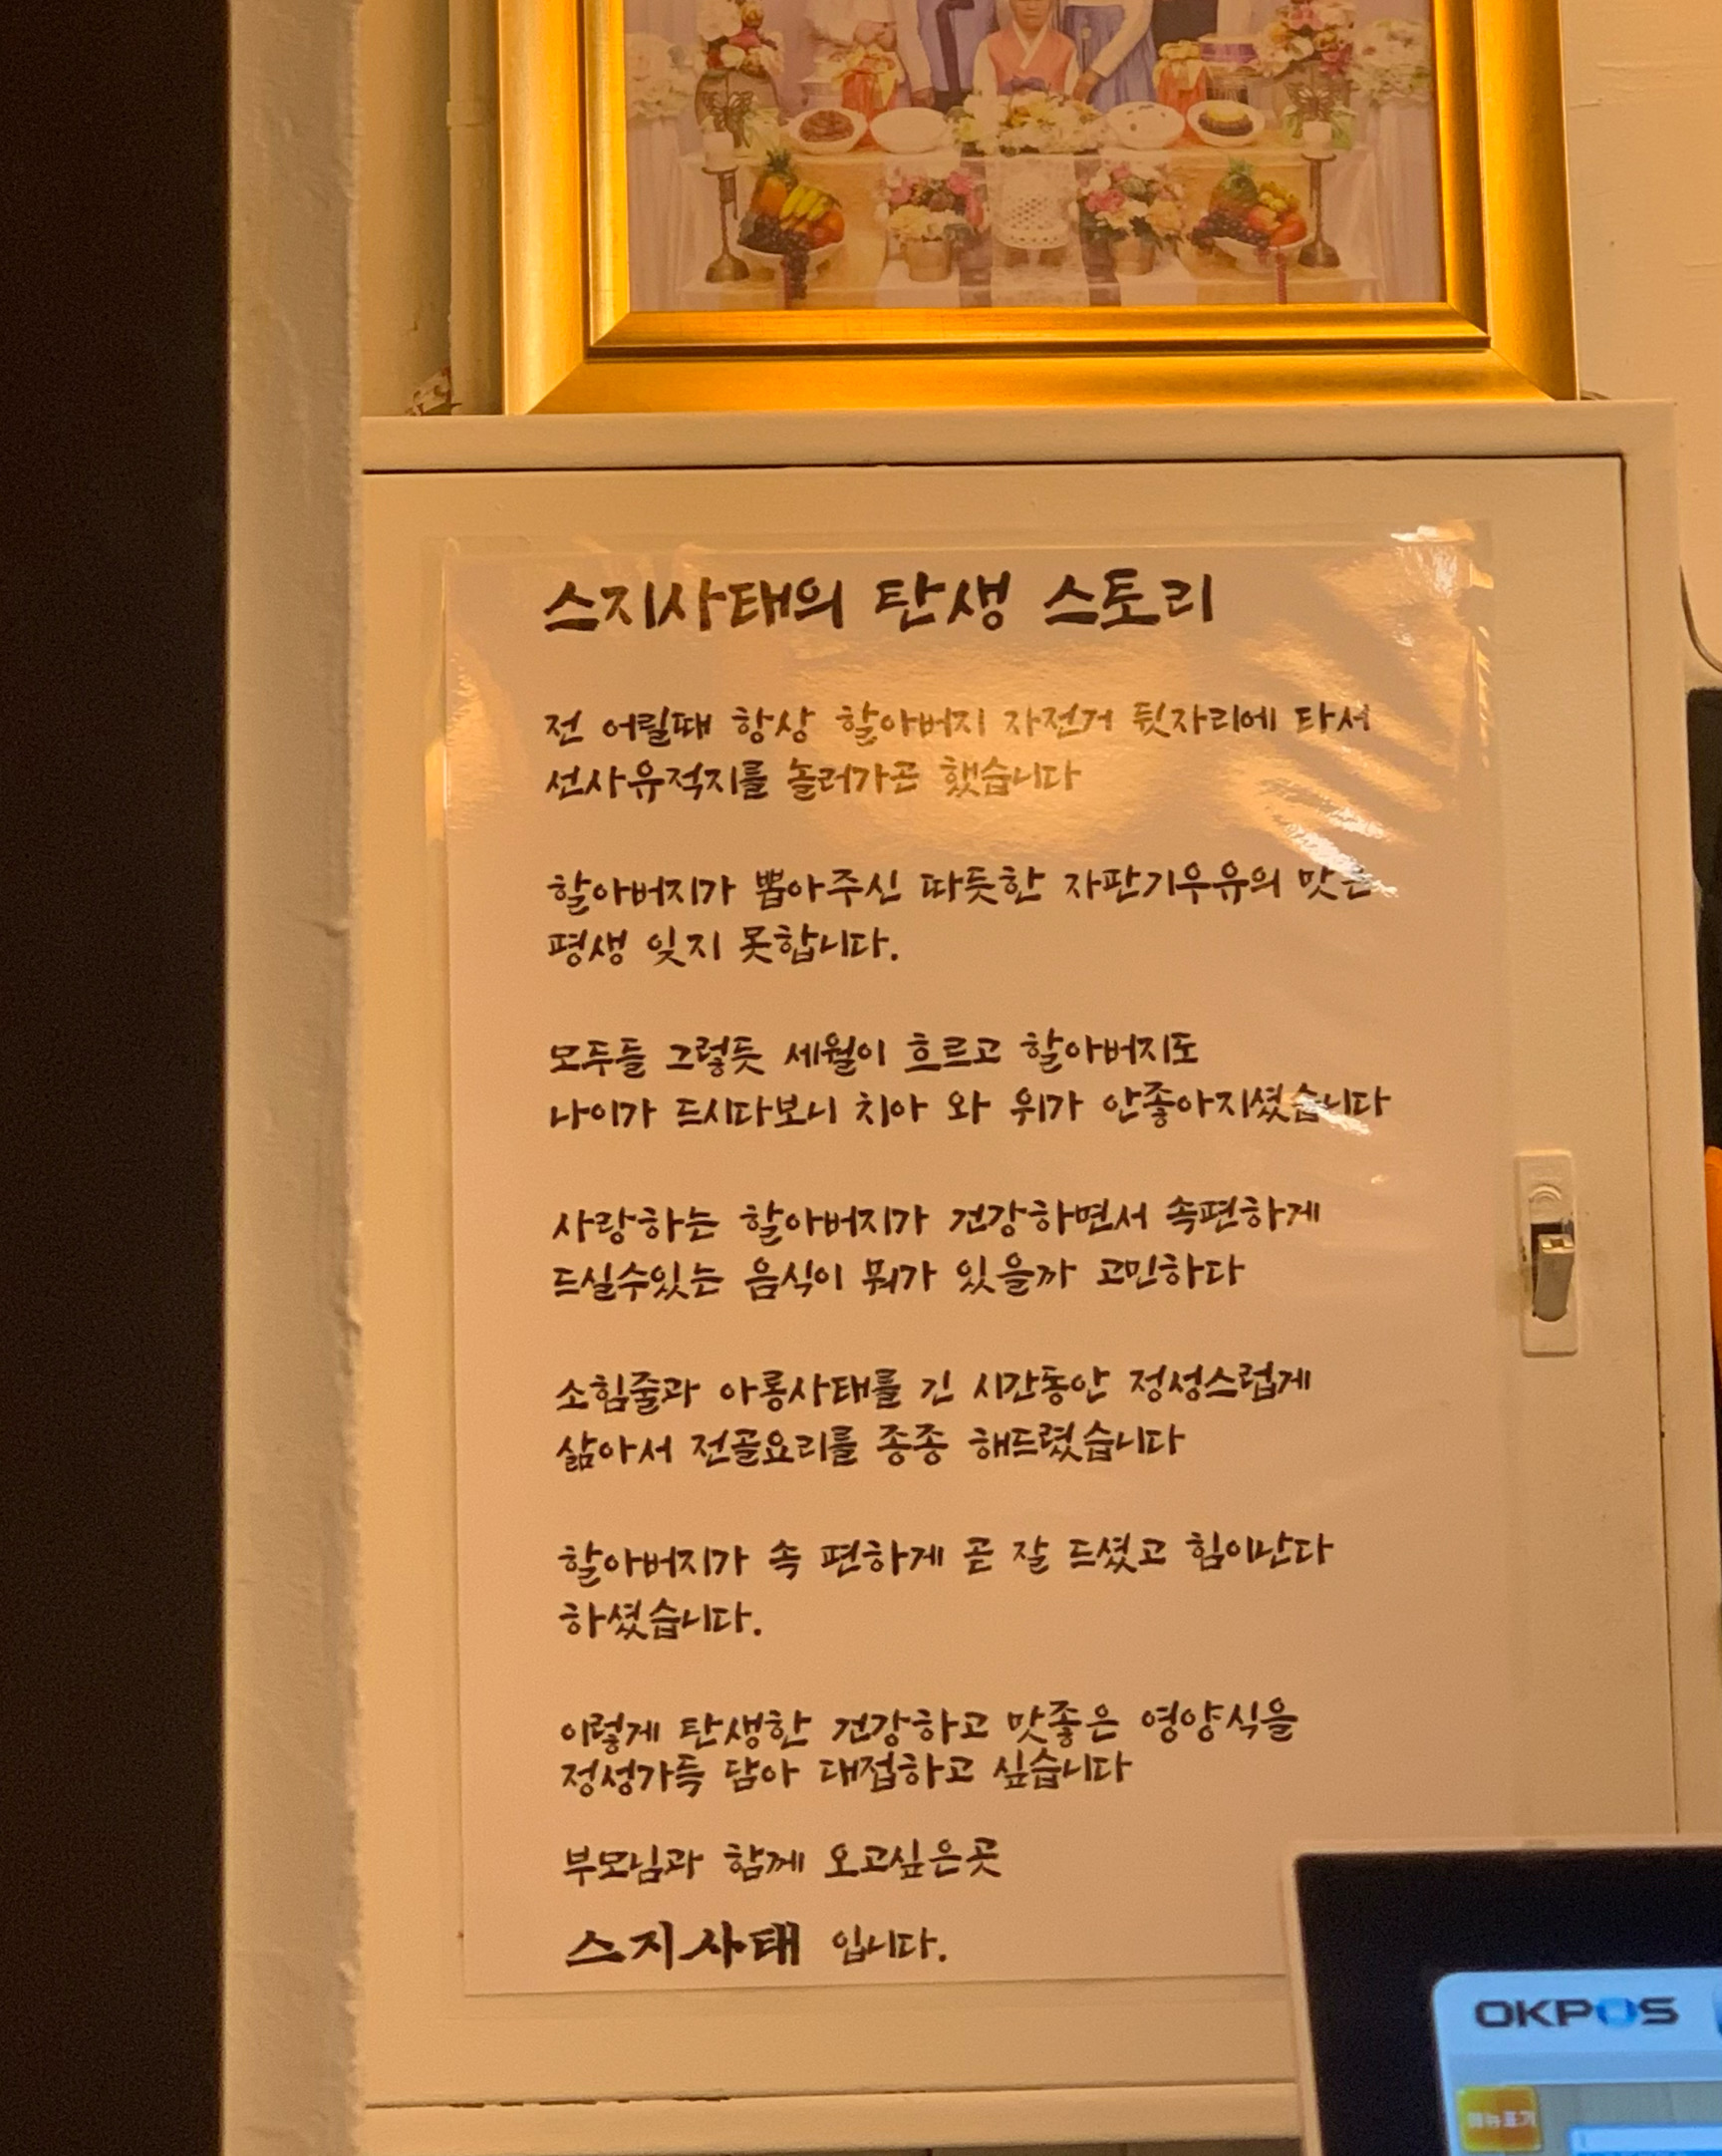 스지사태의 탄생 스토리
전 어릴때 항상 할아버지 자전거 뒷자리에 타서
선사유적지를 놀러가곤 했습니다
할아버지가 뽑아주신 따듯한 자판기우유의 맛은
평생 잊지 못합니다.
모두들 그렇듯 세월이 흐르고 할아버지도
나이가 드시다보니 치아 와 위가 안좋아지셨습니다
사랑하는 할아버지가 건강하면서 속편하게
드실수있는 음식이 뭐가 있을까 고민하다
소힘줄과 아롱사태를 긴 시간동안 정성스럽게
삶아서 전골요리를 종종 해드렸습니다
할아버지가 속 편하게 곧 잘 드셨고 힘이난다
하셨습니다.
이렇게 탄생한 건강하고 맛좋은 영양식을
정성가득 담아 대접하고 싶습니다
부모님과 함께 오고싶은곳
스지사태 입니다.
OKPOS